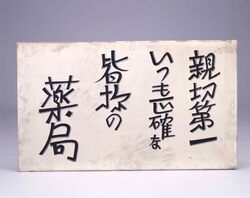 親切第一
いつも正確な
皆様の
薬局